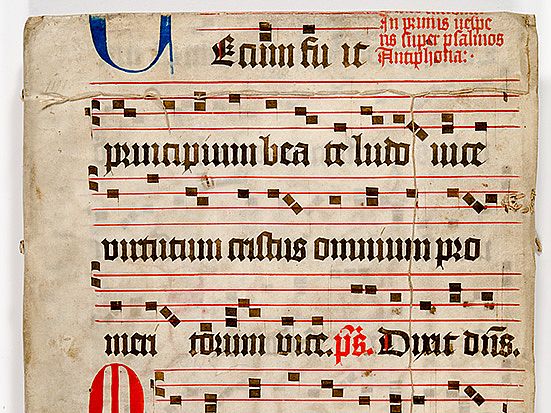 In primis uespe
ris super psalmos
Antiphona:
TEcum fu it
principium bea te ludo uice
virtutum cristus omnium pro
meri torum vice. ps. Dixit dns.